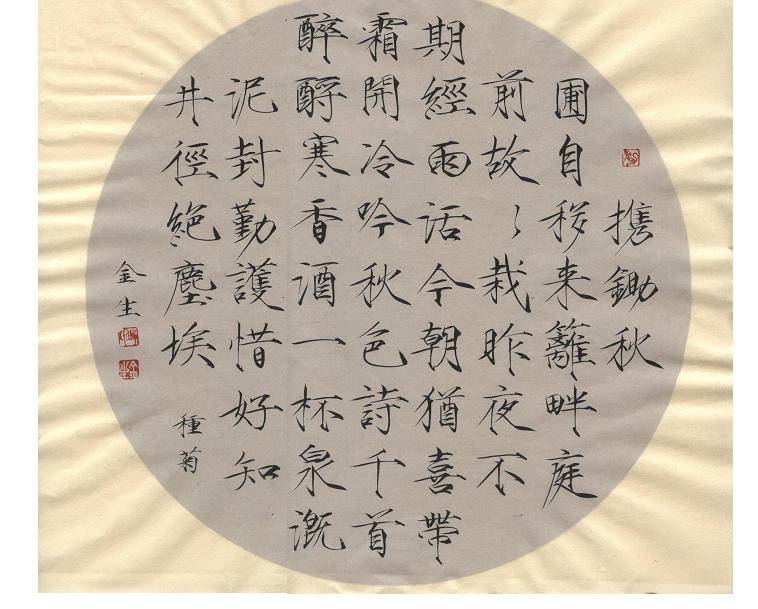 携鋤秋
圃自移来籬畔庭
前故〻栽昨夜不
期經雨活今朝猶喜帶
霜開冷吟秋色詩千首
醉酹寒香酒一杯泉溉
泥封勤護惜好知
井徑絕塵埃
種菊
金生